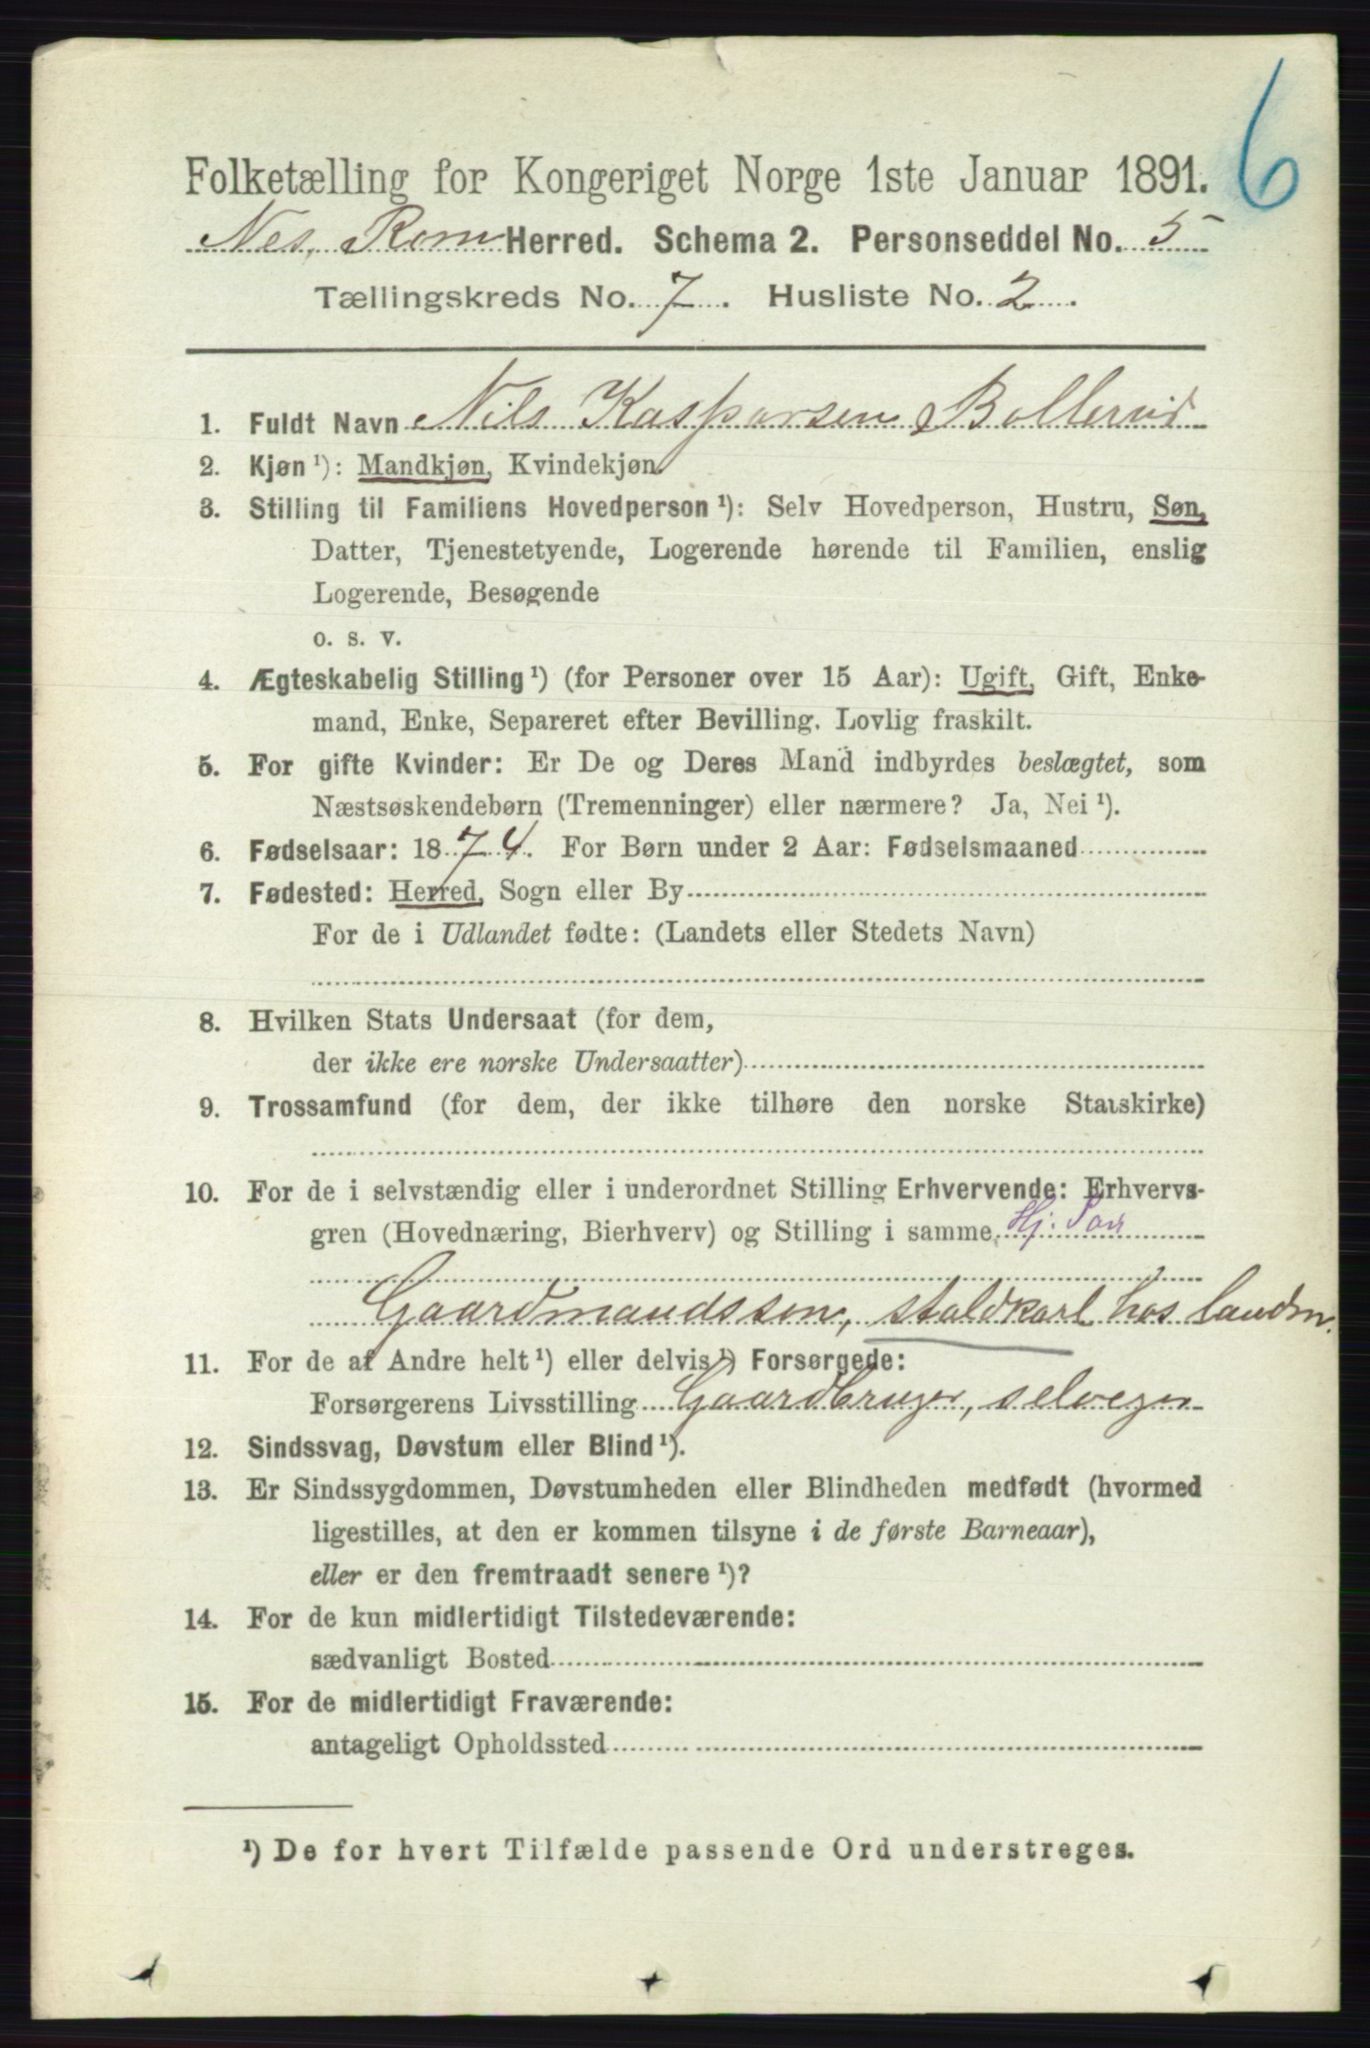 6
Folketælling for Kongeriget Norge 1ste Januar 1891.
Nes, Rom Herred. Schema 2. Personseddel No. 5
Tællingskreds No. 7. Husliste No. 2.
1. Fuldt Navn Nils Kasparsen Bollerud
2. Kjøn ¹): Mandkjøn, Kvindekjøn.
3. Stilling til Familiens Hovedperson ¹): Selv Hovedperson, Hustru, Søn,
Datter, Tjenestetyende, Logerende hørende til Familien, enslig
Logerende, Besøgende
o. s. v.
4. Ægteskabelig Stilling ¹) (for Personer over 15 Aar): Ugift, Gift, Enke-
mand, Enke, Separeret efter Bevilling. Lovlig fraskilt.
5. For gifte Kvinder: Er De og Deres Mand indbyrdes beslægtet, som
Næstsøskendebørn (Tremenninger) eller nærmere? Ja, Nei ¹).
6. Fødselsaar: 1874. For Børn under 2 Aar: Fødselsmaaned
7. Fødested: Herred, Sogn eller By
For de i Udlandet fødte: (Landets eller Stedets Navn)
8. Hvilken Stats Undersaat (for dem,
der ikke ere norske Undersaatter)
9. Trossamfund (for dem, der ikke tilhøre den norske Statskirke)
10. For de i selvstændig eller i underordnet Stilling Erhvervende: Erhvervs-
gren (Hovednæring, Bierhverv) og Stilling i samme. Hj.
Gaardmandssøn, staldkarl hos landm.
11. For de af Andre helt ¹) eller delvis ¹) Forsørgede:
Forsørgerens Livsstilling Gaardbruger, selveger
12. Sindssvag, Døvstum eller Blind ¹).
13. Er Sindssygdommen, Døvstumheden eller Blindheden medfødt (hvormed
ligestilles, at den er kommen tilsyne i de første Barneaar),
eller er den fremtraadt senere ¹)?
14. For de kun midlertidigt Tilstedeværende:
sædvanligt Bosted
15. For de midlertidigt Fraværende:
antageligt Opholdssted
¹) De for hvert Tilfælde passende Ord understreges.